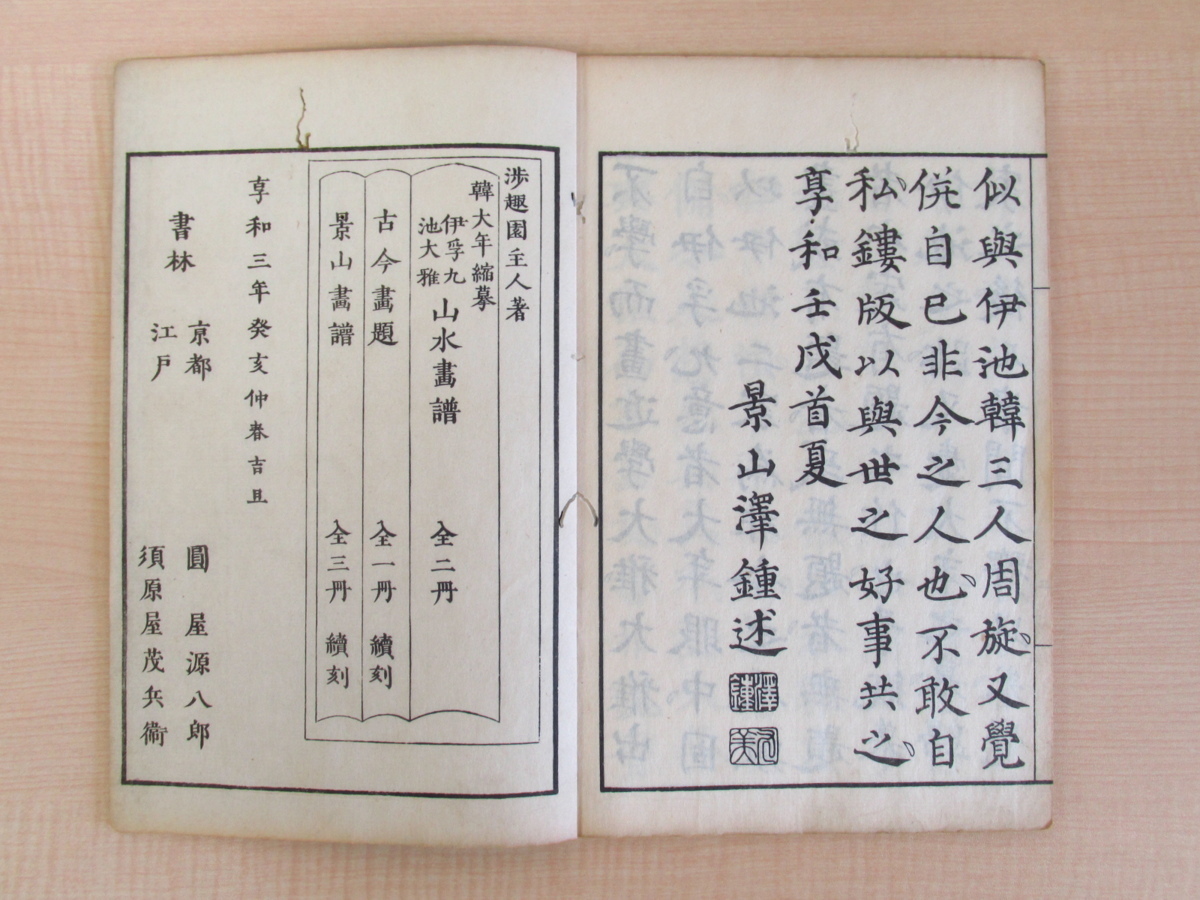 似與伊池韓三人周旋又覺
併自已非今之人也不敢自
私鏤版以與世之好事共之
享和壬戌首夏
景山澤鍾述
澤鍾
涉趣園主人著
韓大年縮摹
伊孚九
池大雅
山水畫譜 全二冊
古今畫題 全一冊 續刻
景山畫譜 全三冊 續刻
享和三年癸亥仲春吉旦
書林
京都 圓屋源八郎
江戸 須原屋茂兵衞